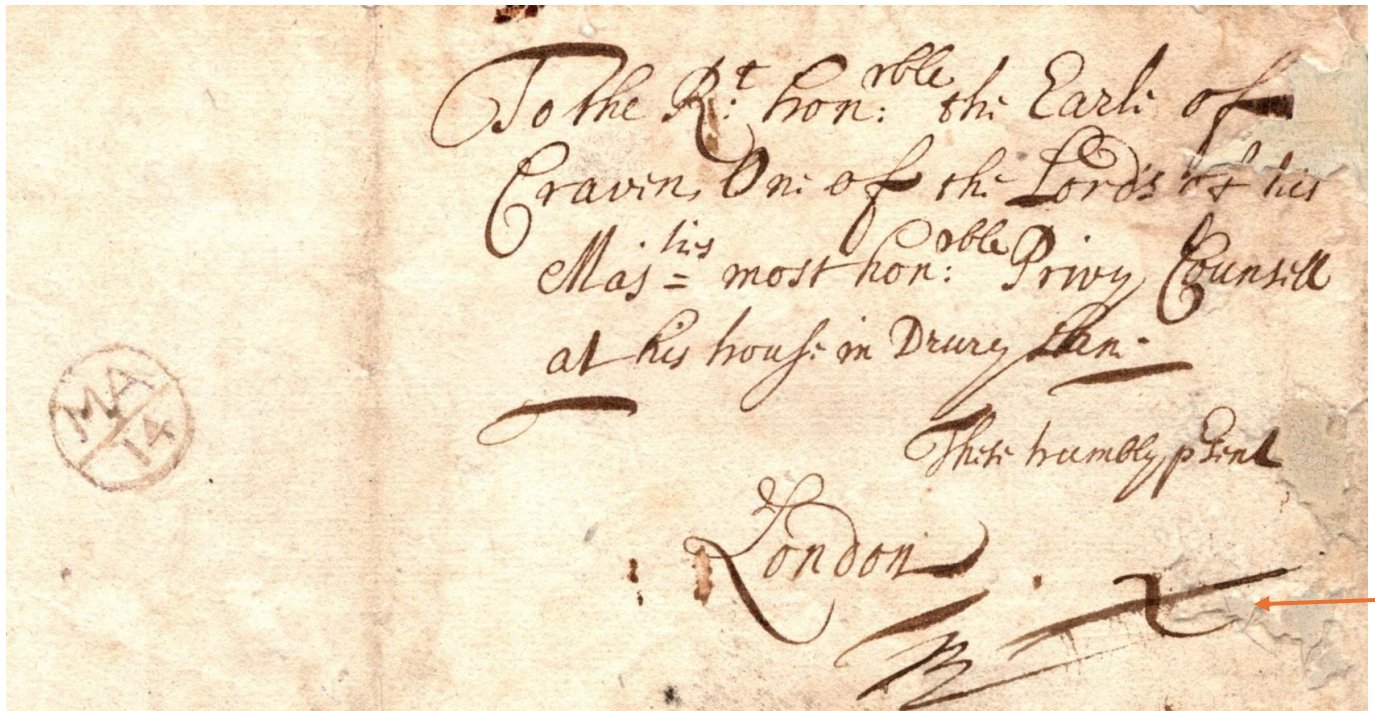 To the R:t hon:rble the Earle of
Craven, One of the Lords of his
Maj=ties most hon:rble Privy Counsell
at his house in Drury Lane
These humbly p̱sent
London
MA
14